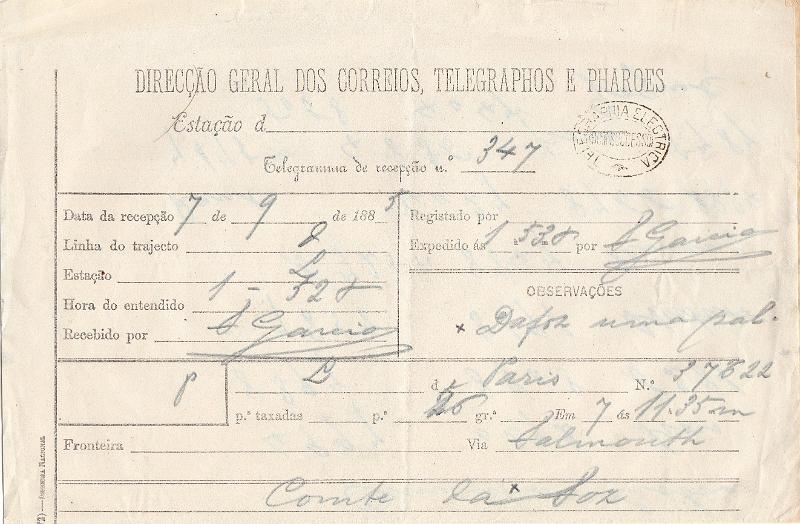 DIRECÇÃO GERAL DOS CORREIOS, TELEGRAPHOS E PHAROES
Estação d
TELEGRAPHIA ELECTRICA
Telegramma de recepção n.º 347
Data da recepção 7 de 9 de 1885
Registado por
Linha do trajecto
Expedido ás 1 - 5 20 t por S Garcia
Estação L
Hora do entendido 1 - 520 t
OBSERVAÇÕES
Recebido por S Garcia
x Dafoz uma pal.
P L d Paris N.º 37622
p.ª taxadas p.ª 26 gr.ª Em 7 ás 11.35 m
Fronteira Via Falmouth
Comte da x Foz
2) — Imprensa Nacional